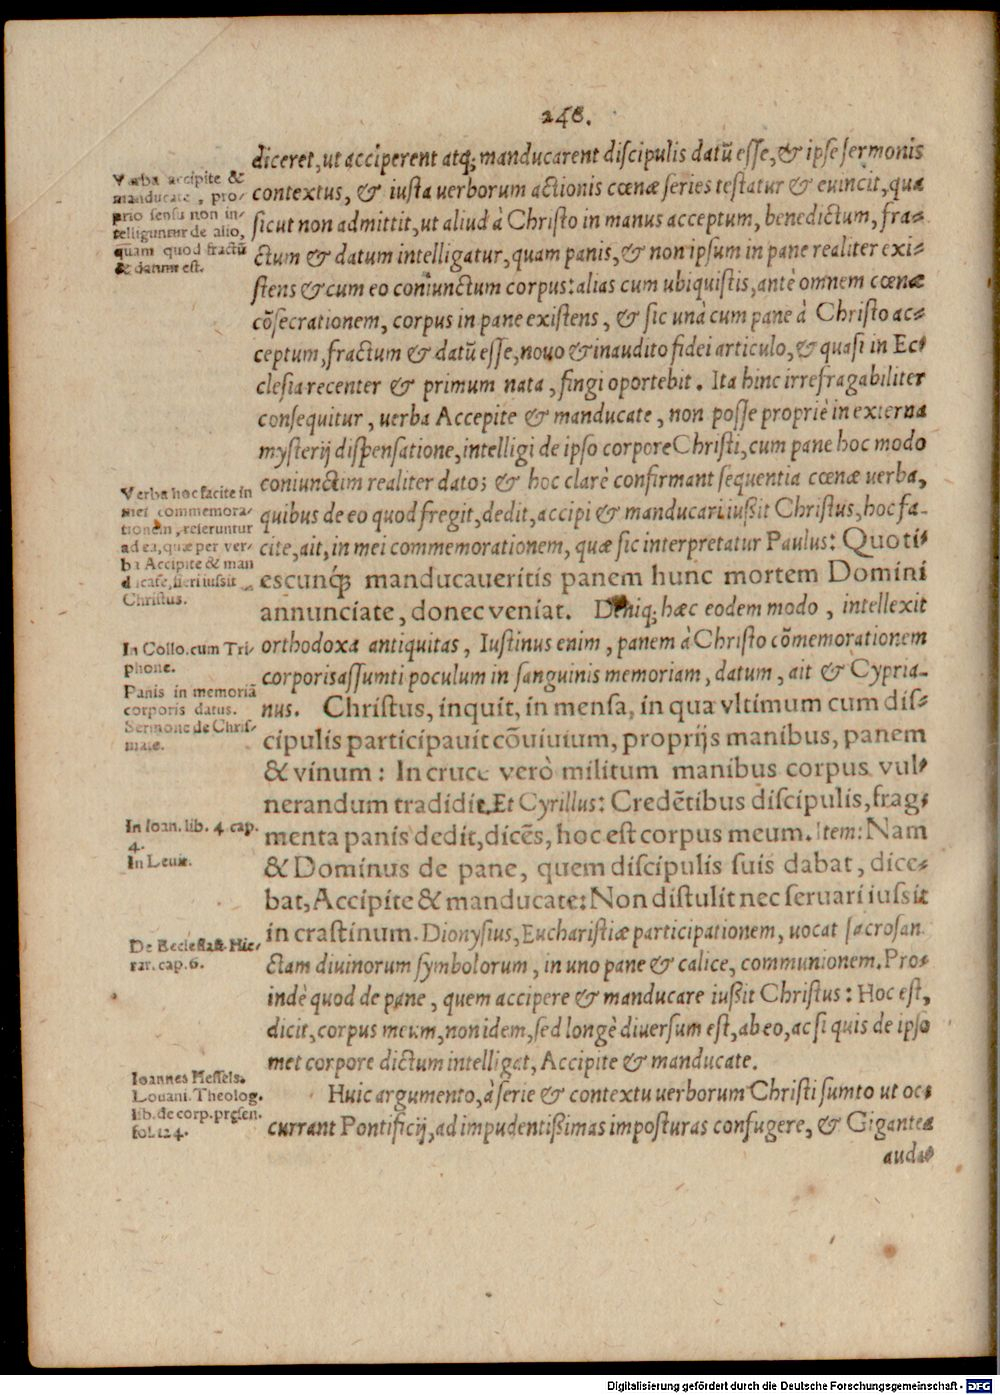 248.
diceret, ut acciperent atq; manducarent discipulis datũ esse, & ipse sermonis
contextus, & iusta uerborum actionis cœnæ series testatur & euincit, quæ
sicut non admittit, ut aliud à Christo in manus acceptum, benedictum, fra-
ctum & datum intelligatur, quam panis, & non ipsum in pane realiter exi-
stens & cum eo coniunctum corpus: alias cum ubiquistis, antè omnem cœnæ
cõsecrationem, corpus in pane existens, & sic unà cum pane à Christo ac-
ceptum, fractum & datũ esse, nouo & inaudito fidei articulo, & quasi in Ec-
clesia recenter & primum nata, fingi oportebit. Ita hinc irrefragabiliter
consequitur, uerba Accepite & manducate, non posse propriè in externa
mysterij dispensatione, intelligi de ipso corpore Christi, cum pane hoc modo
coniunctim realiter dato; & hoc clarè confirmant sequentia cœnæ uerba,
quibus de eo quod fregit, dedit, accipi & manducari iußit Christus, hoc fa-
cite, ait, in mei commemorationem, quæ sic interpretatur Paulus: Quoti-
escunq; manducaueritis panem hunc mortem Domini
annunciate, donec veniat. Deniq; hæc eodem modo, intellexit
orthodoxa antiquitas, Iustinus enim, panem à Christo cõmemorationem
corporis assumti poculum in sanguinis memoriam, datum, ait & Cypria-
nus. Christus, inquit, in mensa, in qua vltimum cum dis-
cipulis participauit cõuiuium, proprijs manibus, panem
& vinum: In cruce verò militum manibus corpus vul-
nerandum tradidit. Et Cyrillus: Credẽtibus discipulis, frag-
menta panis dedit, dicẽs, hoc est corpus meum. Item: Nam
& Dominus de pane, quem discipulis suis dabat, dice-
bat, Accipite & manducate: Non distulit nec seruari iussit
in crastinum. Dionysius, Eucharistiæ participationem, uocat sacrosan
ctam diuinorum symbolorum, in uno pane & calice, communionem. Pro-
indè quod de pane, quem accipere & manducare iußit Christus: Hoc est,
dicit, corpus meum, non idem, sed longè diuersum est, ab eo, ac si quis de ipso
met corpore dictum intelligat, Accipite & manducate.
Huic argumento, à serie & contextu uerborum Christi sumto ut oc-
currant Pontificij, ad impudentißimas imposturas confugere, & Gigantea
auda-
Verba accipite &
manducate, pro-
prio sensu non in-
telliguntur de alio,
quam quod fractũ
& datum est.
Verba hoc facite in
mei commemora-
tionem, referuntur
ad ea, quæ per ver-
ba Accipite & man
ducate, fieri iussit
Christus.
In Collo. cum Tri-
phone.
Panis in memoriã
corporis datus.
Sermone de Chris-
mate.
In Ioan. lib. 4. cap.
4.
In Leuit.
De Ecclesiast. Hie-
rar. cap. 6.
Ioannes Hessels.
Louani. Theolog.
lib. de corp. præsen.
fol. 124.
Digitalisierung gefördert durch die Deutsche Forschungsgemeinschaft - DFG